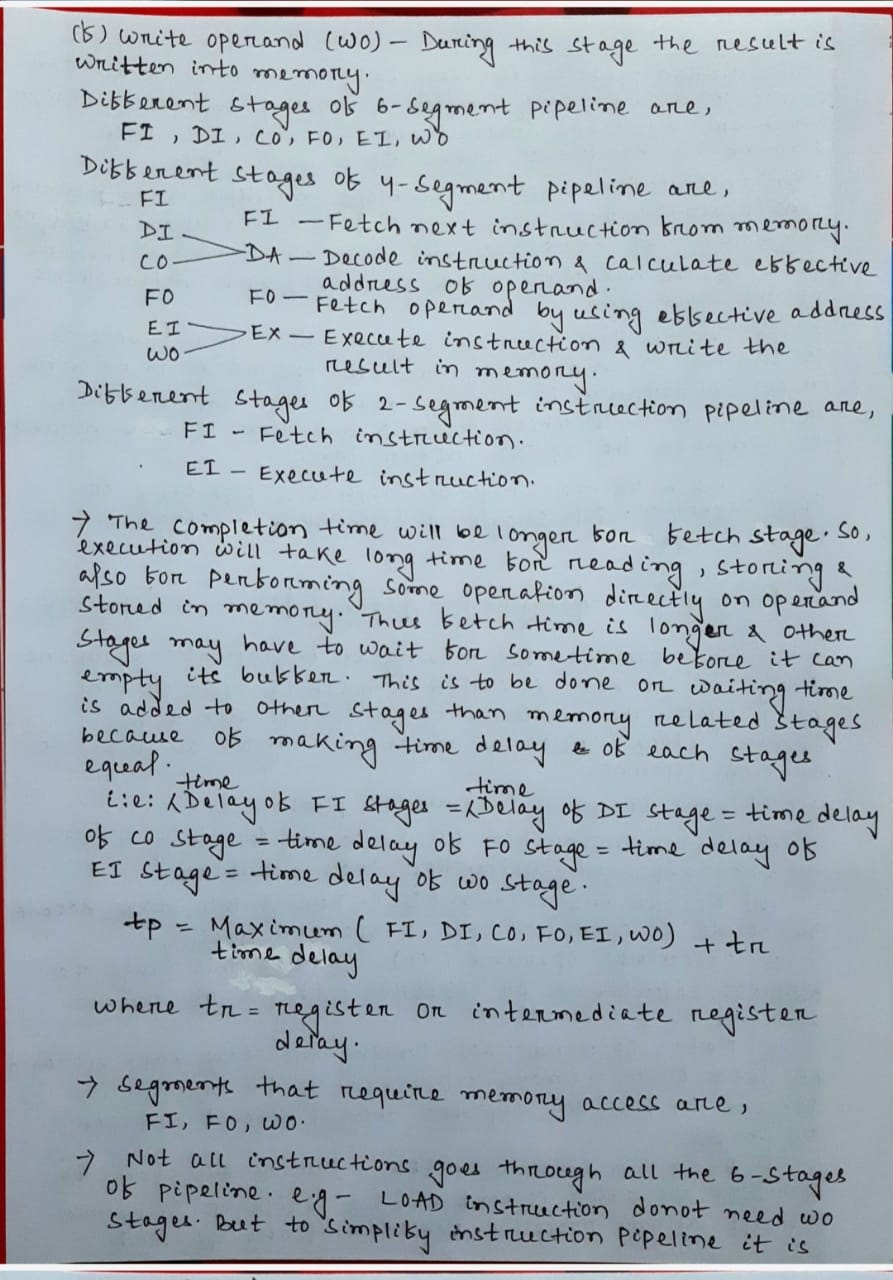 (f) Write operand (WO) - During this stage the result is
written into memory.
Different stages of 6-segment pipeline are,
FI, DI, CO, FO, EI, WO
Different stages of 4-segment pipeline are,
FI
DI FI - Fetch next instruction from memory.
CO DA - Decode instruction & calculate effective
address of operand.
FO FO - Fetch operand by using effective address
EI EX - Execute instruction & write the
WO result in memory.
Different stages of 2-segment instruction pipeline are,
FI - Fetch instruction.
EI - Execute instruction.
→ The completion time will be longer for fetch stage. So,
execution will take long time for reading, storing &
also for performing some operation directly on operand
stored in memory. Thus fetch time is longer & other
stages may have to wait for sometime before it can
empty its buffer. This is to be done or waiting time
is added to other stages than memory related stages
because of making time delay & of each stages
equal.
i:e: time Delay of FI stages = time Delay of DI stage = time delay
of CO stage = time delay of FO stage = time delay of
EI stage = time delay of WO stage.
tp = Maximum ( FI, DI, CO, FO, EI, WO) + tr
time delay
where tr = register or intermediate register
delay.
→ segments that require memory access are,
FI, FO, WO.
→ Not all instructions goes through all the 6-stages
of pipeline. e.g - LOAD instruction donot need WO
stages. But to simplify instruction pipeline it is